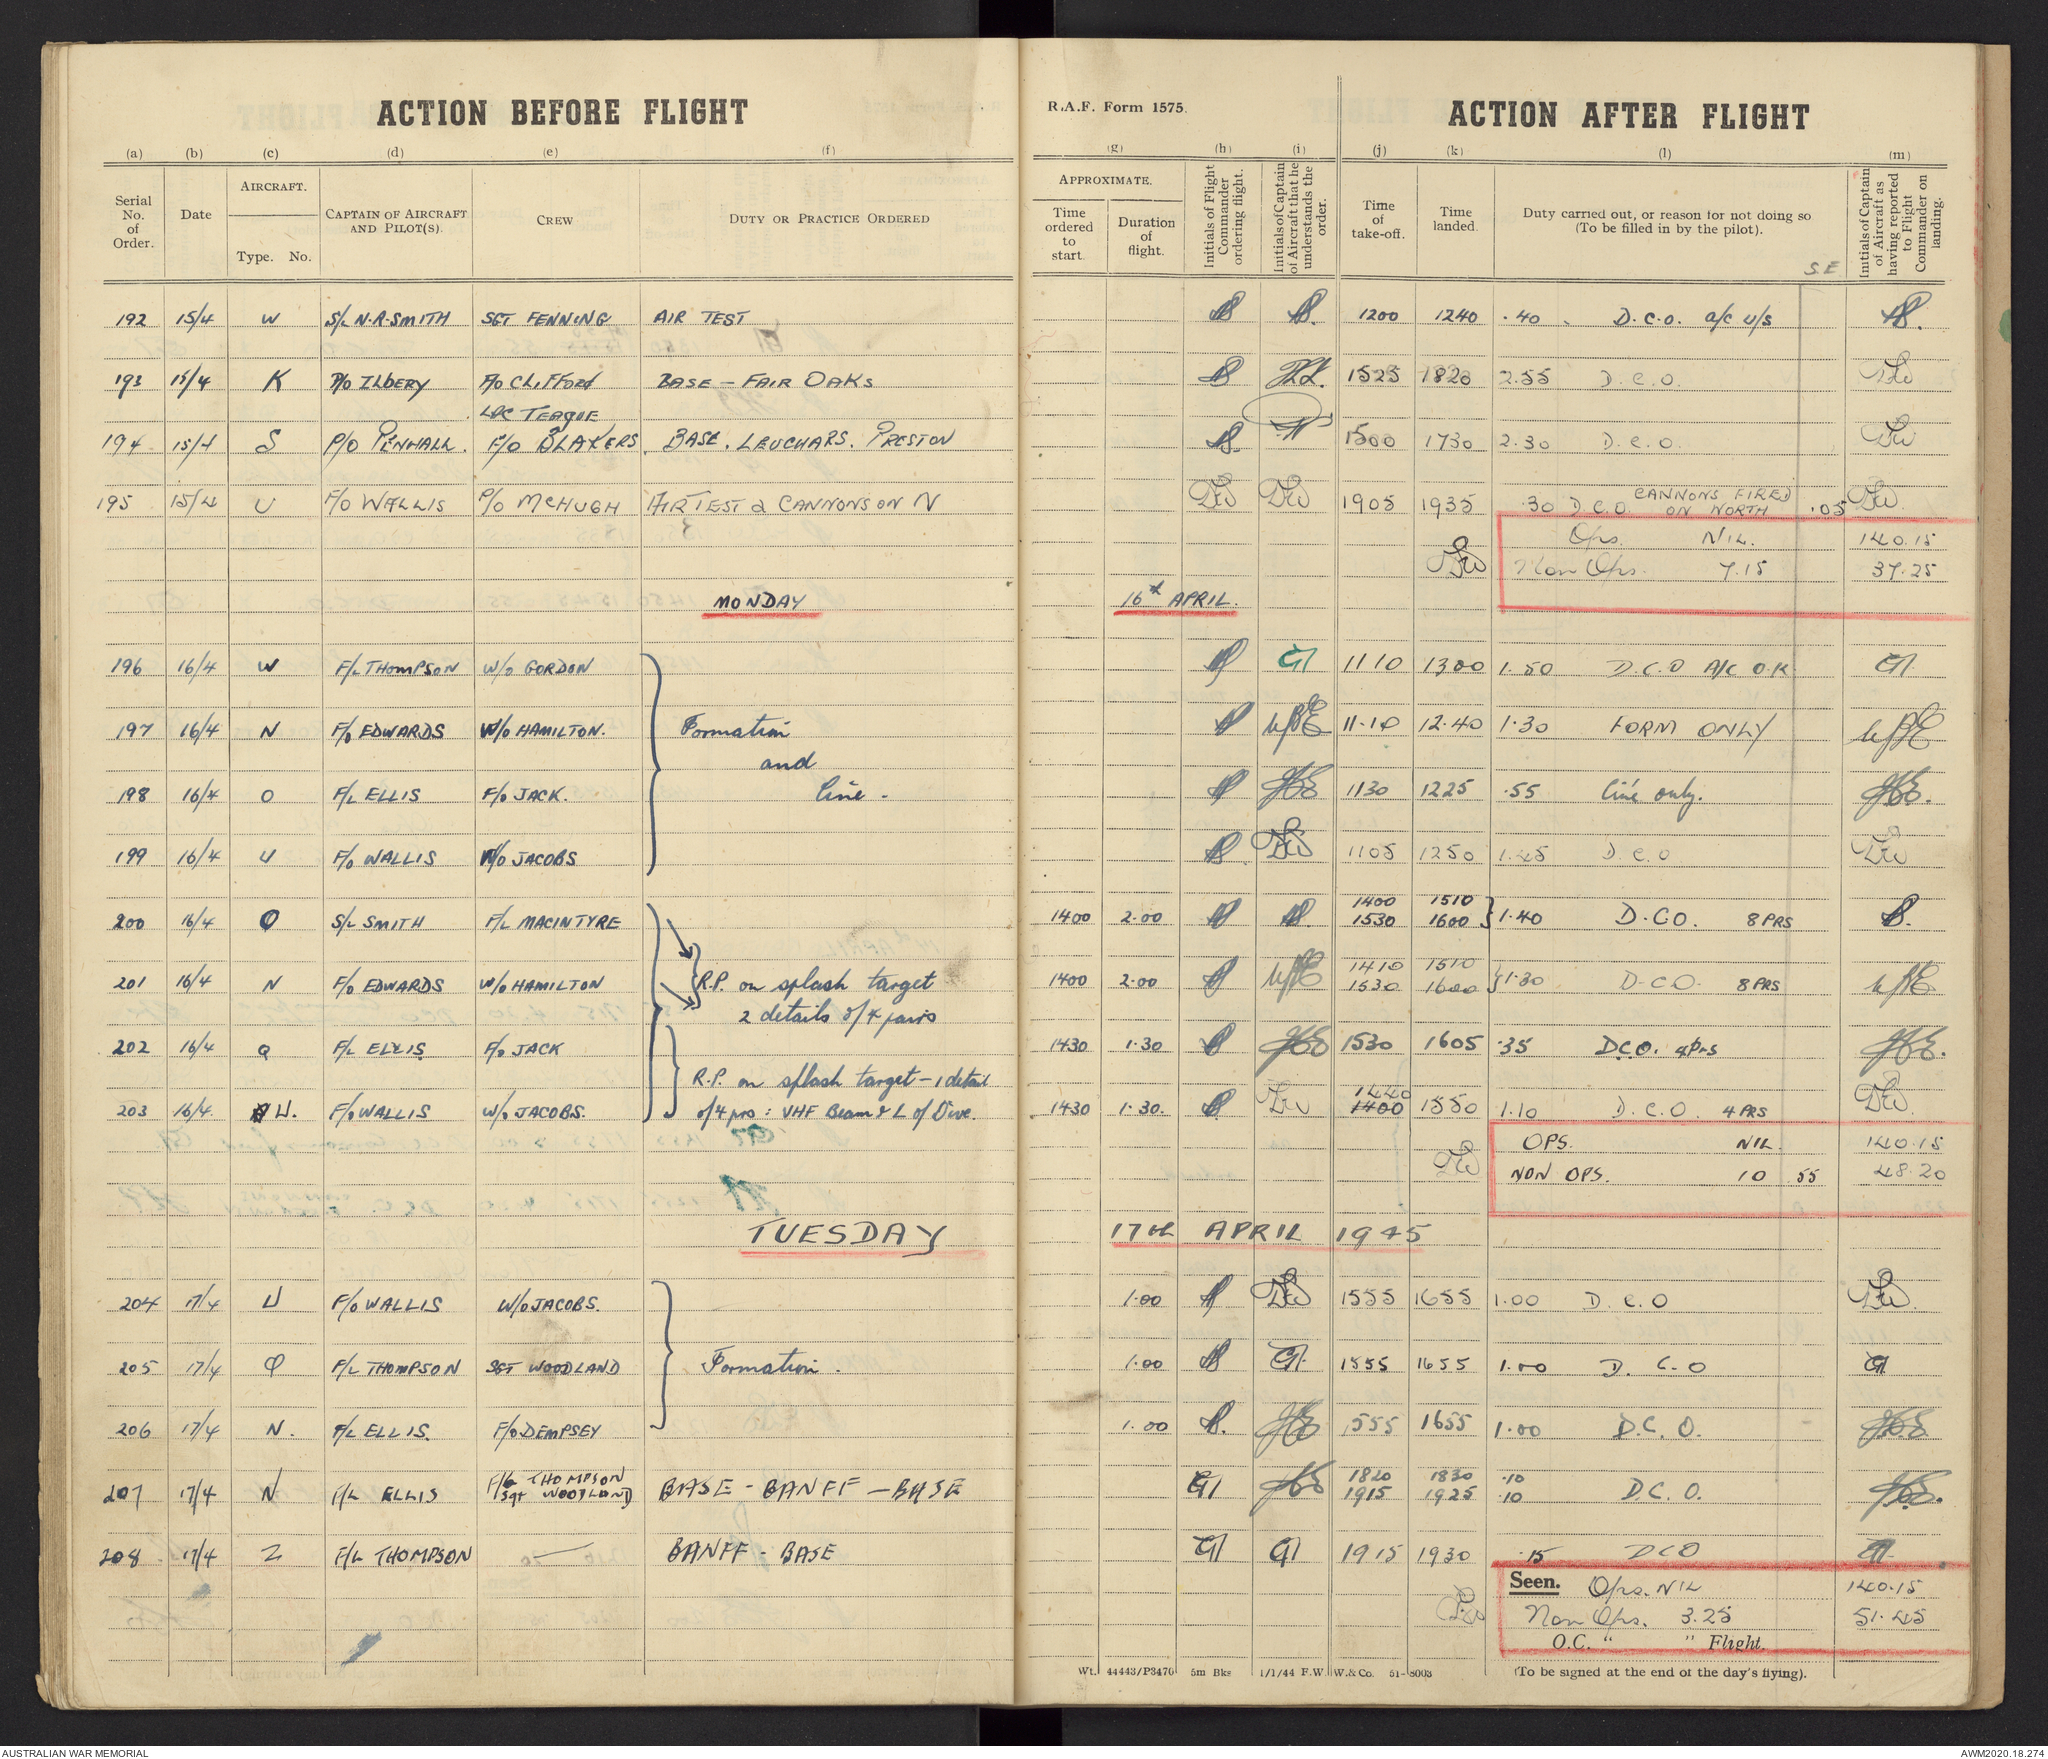 ACTION BEFORE FLIGHT
R.A.F. Form 1575.
ACTION AFTER FLIGHT
(a) (b) (c) (d) (e) (f) (g) (h) (i) (j) (k) (l) (m)
Serial No. of Order.
Date
AIRCRAFT.
Type. No.
CAPTAIN OF AIRCRAFT AND PILOT(S).
CREW
DUTY OR PRACTICE ORDERED
APPROXIMATE.
Time ordered to start.
Duration of flight.
Initials of Flight Commander ordering flight.
Initials of Captain of Aircraft that he understands the order.
Time of take-off.
Time landed.
Duty carried out, or reason for not doing so
(To be filled in by the pilot).
S.E
Initials of Captain of Aircraft as having reported to Flight Commander on landing.
192 15/4 W S/L N.R. SMITH SGT FENNING AIR TEST 1200 1240 .40 D.C.O. a/c u/s
193 15/4 K P/O ILBERY F/O CLIFFORD BASE - FAIR OAKS 1525 1820 2.55 D.C.O.
LAC TEAGUE
194 15/4 S P/O PENHALL. F/O BLAKERS. BASE. LEUCHARS. PRESTON 1500 1730 2.30 D.C.O.
195 15/4 U F/O WALLIS P/O McHUGH AIR TEST & CANNONS ON N 1905 1935 .30 D.C.O. CANNONS FIRED ON NORTH .05
Ops. NIL. 140.15
Non Ops. 7.15 37.25
MONDAY 16th APRIL.
196 16/4 W F/L THOMPSON W/O GORDON 1110 1300 1.50 D.C.O A/C O.K
197 16/4 N F/O EDWARDS W/O HAMILTON. Formation 11.10 12.40 1.30 FORM ONLY
and
198 16/4 O F/L ELLIS F/O JACK. line - 1130 1225 .55 line only.
199 16/4 U F/O WALLIS W/O JACOBS 1105 1250 1.45 D.C.O
200 16/4 O S/L SMITH F/L MACINTYRE 1400 2.00 1400 1510
1530 1600 1.40 D.CO. 8 PRS
201 16/4 N F/O EDWARDS W/O HAMILTON R.P. on splash target 1400 2.00 1410 1510
1530 1600 1.30 D.CO. 8 PRS
2 details of 4 pairs
202 16/4 Q F/L ELLIS F/O JACK 1430 1.30 1530 1605 .35 D.C.O. 4 Prs
R.P. on splash target - 1 detail
203 16/4. U. F/O WALLIS W/O JACOBS. of 4 prs : VHF Beam & L of Dive. 1430 1.30. 1440 1400 1550 1.10 D.C.O. 4 PRS
OPS. NIL. 140.15
NON OPS. 10 55 48.20
TUESDAY 17th APRIL 1945
204 17/4 U F/O WALLIS W/O JACOBS. 1.00 1555 1655 1.00 D.C.O
205 17/4 Q F/L THOMPSON SGT WOODLAND Formation. 1.00 1555 1655 1.00 D.C.O
206 17/4 N. F/L ELLIS. F/O DEMPSEY 1.00 1555 1655 1.00 D.C.O.
207 17/4 N F/L ELLIS F/L THOMPSON
Sgt WOODLAND BASE - BANFF - BASE 1820 1830 .10
1915 1925 .10 D.C.O.
208 17/4 Z F/L THOMPSON — BANFF - BASE 1915 1930 .15 DCO
Seen. Ops. NIL 140.15
Non Ops. 3.25 51.45
O.C. " " Flight.
Wt. 44443/P3470 5m Bks 1/1/44 F.W W.& Co. 51-8003
(To be signed at the end of the day's flying).
AUSTRALIAN WAR MEMORIAL
AWM2020.18.274